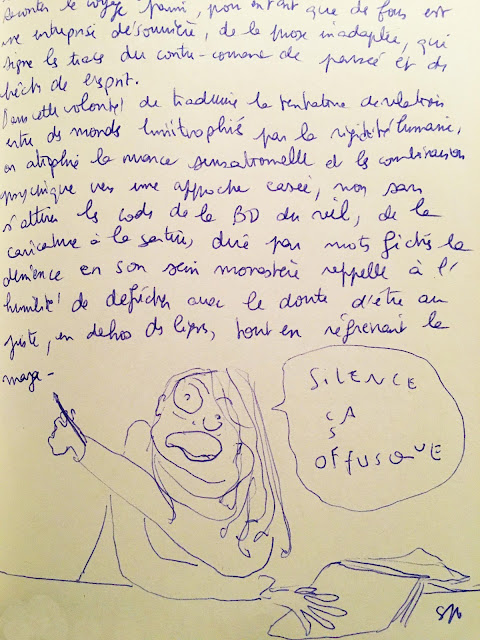 le voyage parmi, pour autant que de fous est
une entreprise désourcière, de la prose inadaptée, qui
signe les traces du contre-comane de pensée et de
de esprit.
Dans cette volonté de traduire la tentative de relations
entre ds mondes limitrophes par la rigidité humaine,
on atrophie la nuance sensationnelle et les combinaison
psychique vers une approche casée, non sans
s'attirer les cods de la BD du réel, de la
caricature à la satire, par mots fichés la
démence en son sein monastère rappelle à l'
humilité de défricher avec le doute d'être au
juste, en dehors ds lignes, tout en réfrénant la
SILENCE
ÇA
S
OFFUSQUE